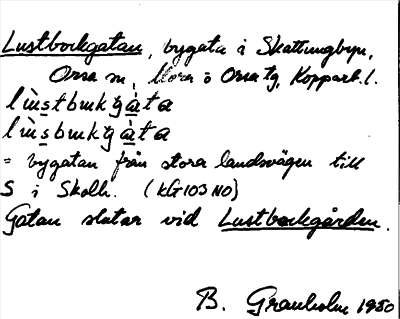 Lustbockgatan, bygata i Skattungbyn,
Orsa sn, Mora o Orsa tg, Kopparb. l.
lùstbukgàta
lùsbukgàta
= bygatan från stora landsvägen till
S i Skolh. (kG103 NO)
Gatan slutar vid Lustbockgården.
B. Granholm 1950